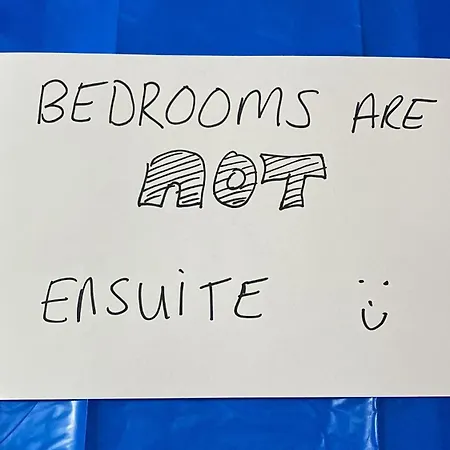 BEDROOMS ARE
NOT
ENSUITE :)